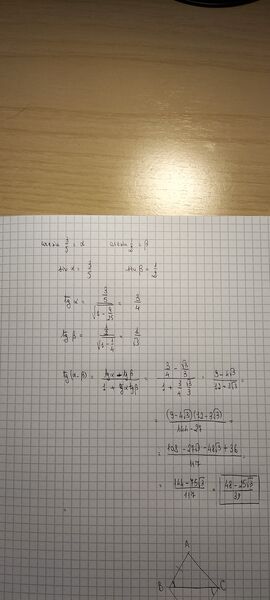 arcsin 3/5 = α arcsin 1/2 = β
sin α = 3/5 sin β = 1/2
tg α = (3/5)/√(1 - 9/25) = 3/4
tg β = (1/2)/√(1 - 1/4) = 1/√3
tg(α-β) = (tgα - tgβ)/(1 + tgα tgβ) = (3/4 - √3/3)/(1 + 3/4 √3/3) = (9 - 4√3)/(12 + 3√3) =
= (9 - 4√3)(12 - 3√3)/(144 - 27) =
= (108 - 27√3 - 48√3 + 36)/117
= (144 - 75√3)/117 = (48 - 25√3)/39
A
B C